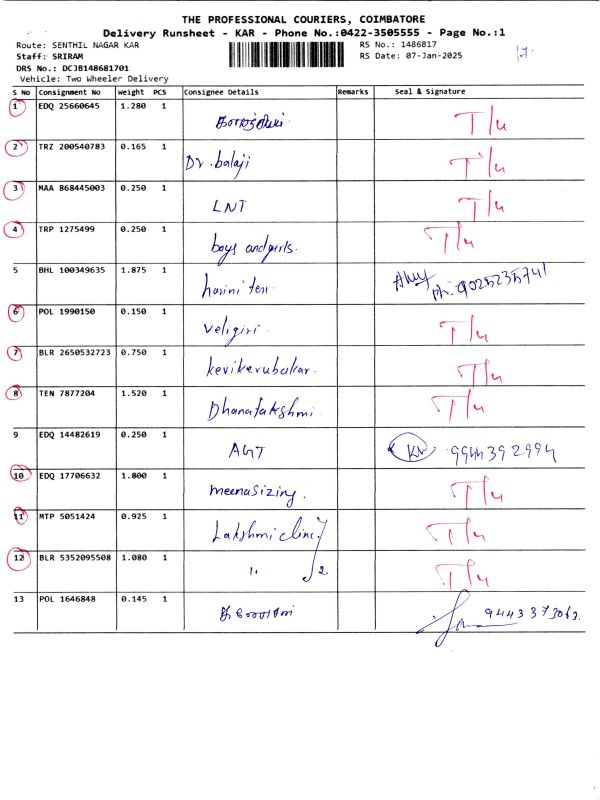 THE PROFESSIONAL COURIERS, COIMBATORE
Delivery Runsheet - KAR - Phone No.:0422-3505555 - Page No.:1
Route: SENTHIL NAGAR KAR RS No.: 1486817
Staff: SRIRAM RS Date: 07-Jan-2025
DRS No.: DCJB148681701
Vehicle: Two Wheeler Delivery
S No Consignment No Weight PCS Consignee Details Remarks Seal & Signature
1 EDQ 25660645 1.280 1 T/u
2 TRZ 200540783 0.165 1 Dr.balaji T/u
3 MAA 868445003 0.250 1 LNT T/u
4 TRP 1275499 0.250 1 boys andgirls. T/u
5 BHL 100349635 1.875 1 harini tex Ph: 9025235741
6 POL 1990150 0.150 1 veligiri T/u
7 BLR 2650532723 0.750 1 T/u
8 TEN 7877204 1.520 1 Dhanalakshmi T/u
9 EDQ 14482619 0.250 1 AGT 9944392994
10 EDQ 17706632 1.800 1 meenasizing. T/u
11 MTP 5051424 0.925 1 Lakshmi clinic T/u
12 BLR 5352095508 1.080 1 " 2 T/u
13 POL 1646848 0.145 1 9443373063.